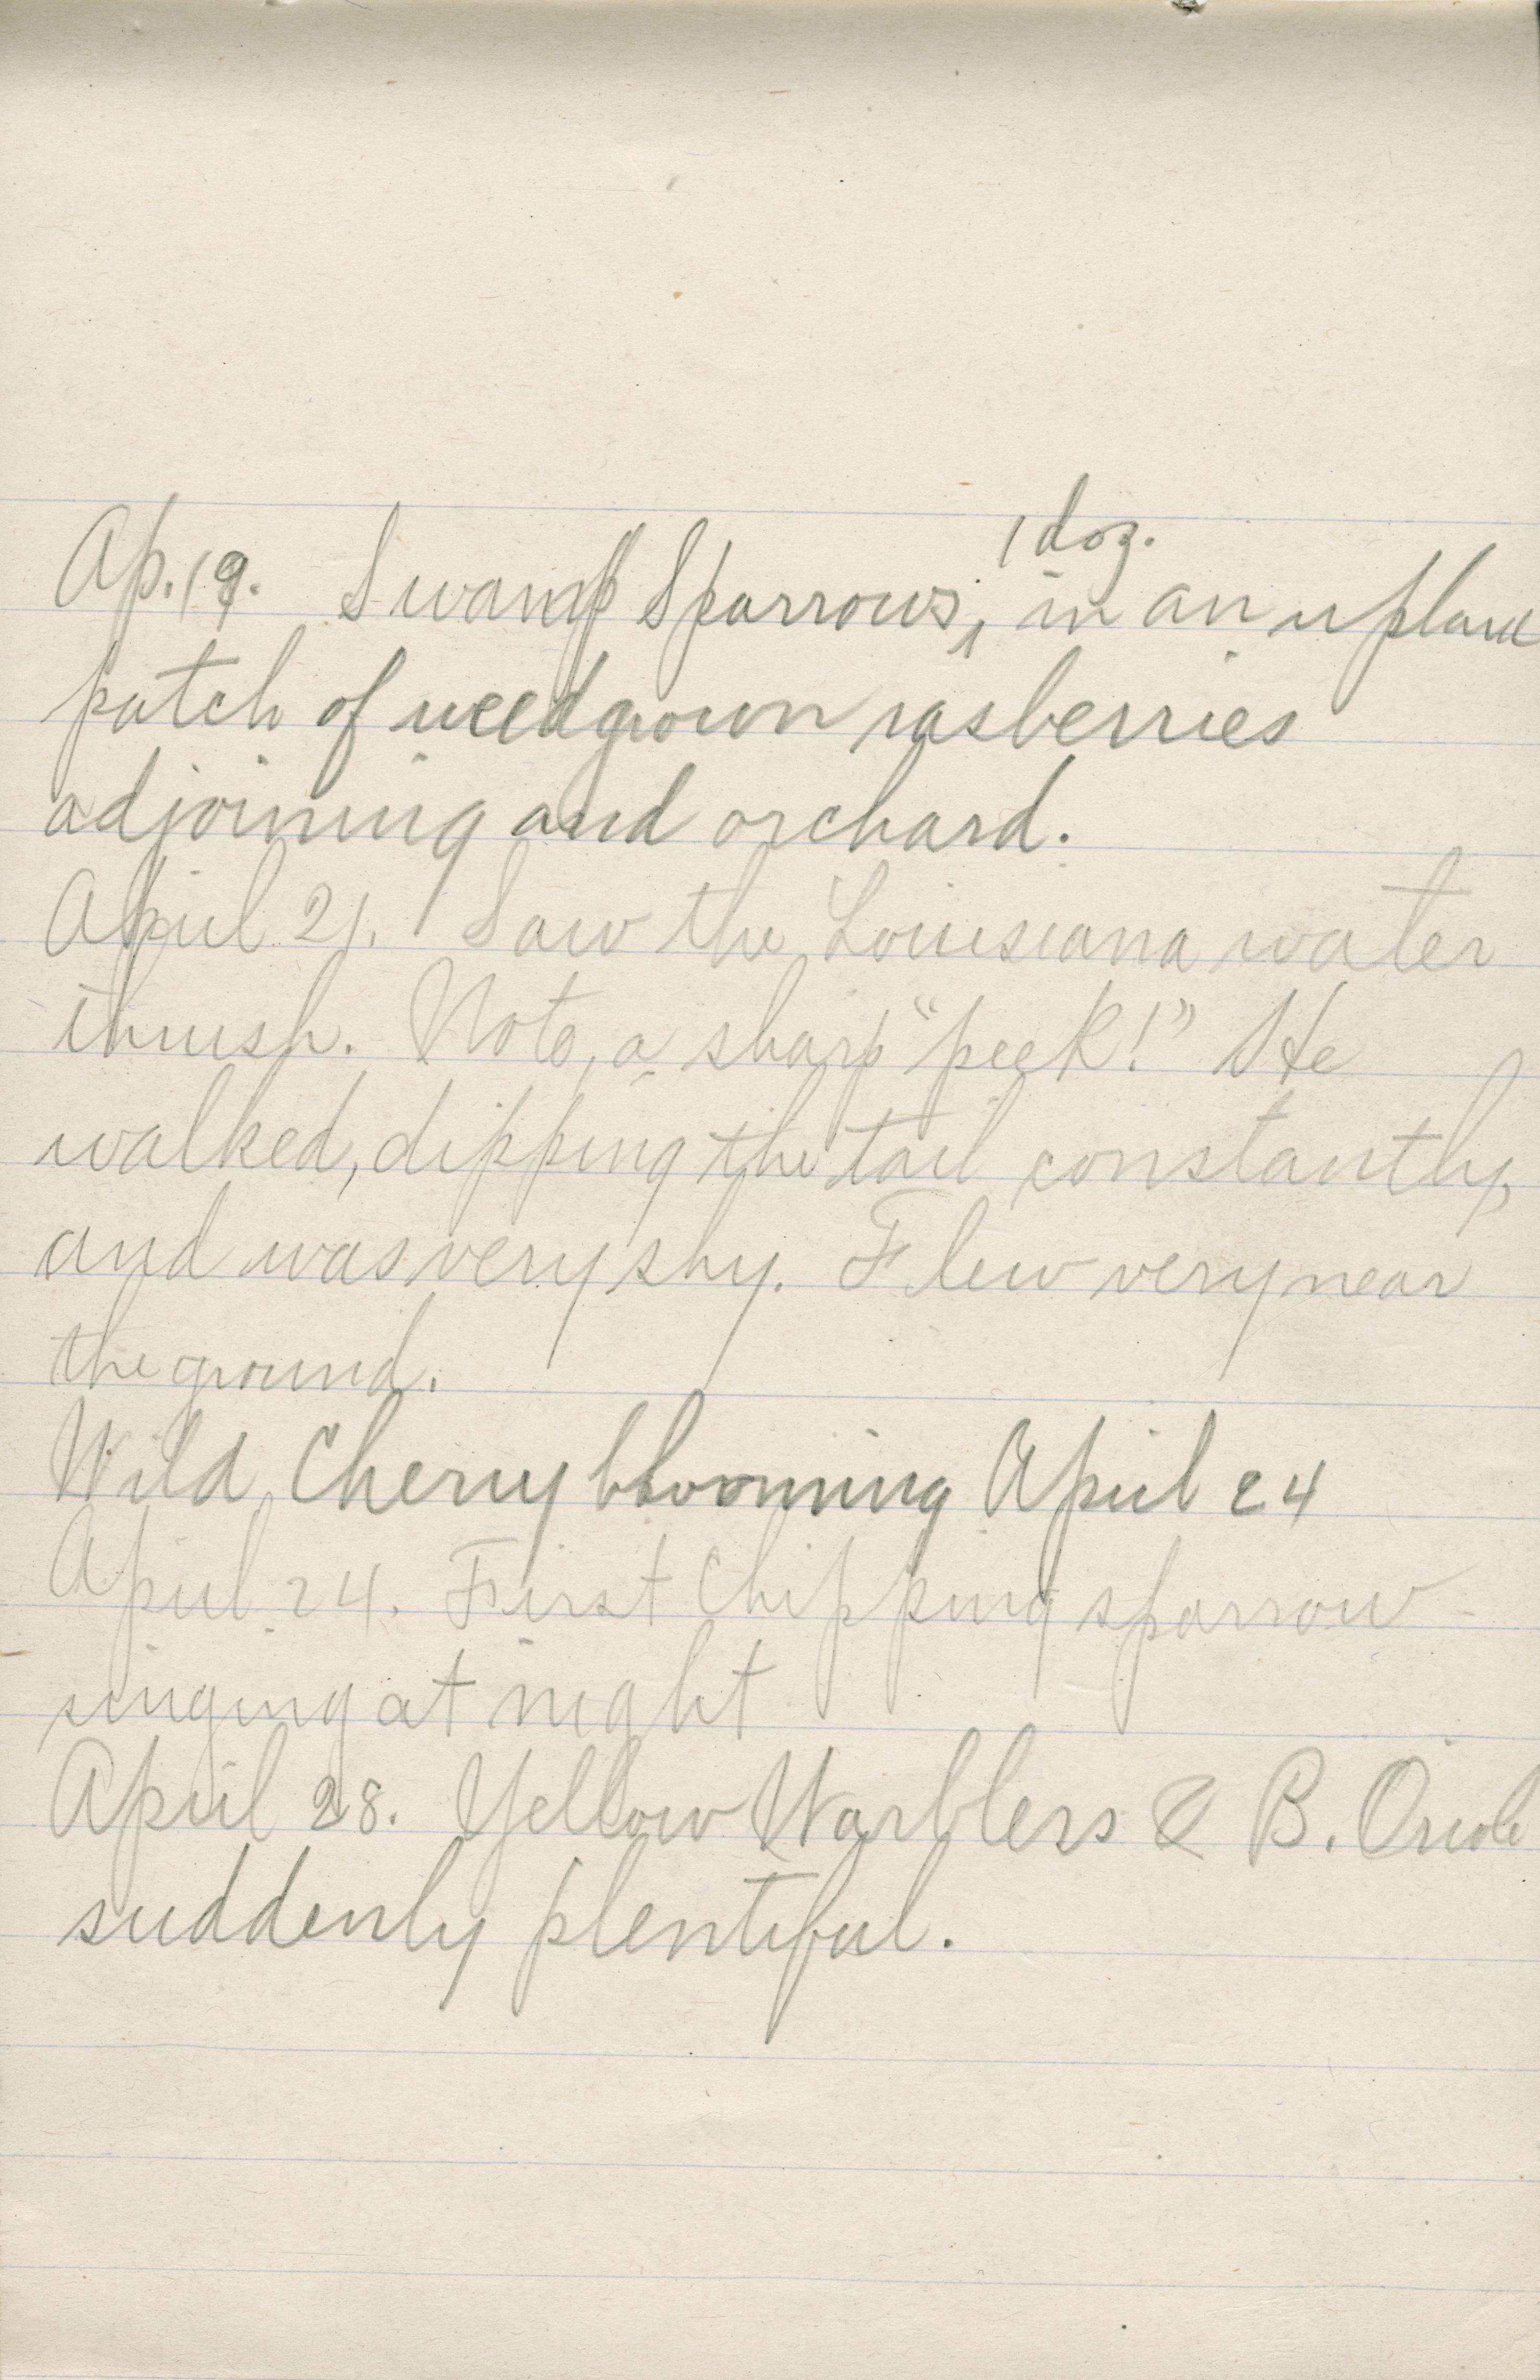 1 doz.
Ap. 19. Swamp Sparrows, in an upland
patch of weedgrown rasberries
adjoining and orchard.
April 21. Saw the Louisiana water
thrush. Note, a sharp "peek!" He
walked, dipping the tail constantly,
and was very shy. Flew very near
the ground.
Wild Cherry blooming April 24
April 24. First Chipping sparrow
singing at night
April 28. Yellow Warblers & B. Oriole
suddenly plentiful.